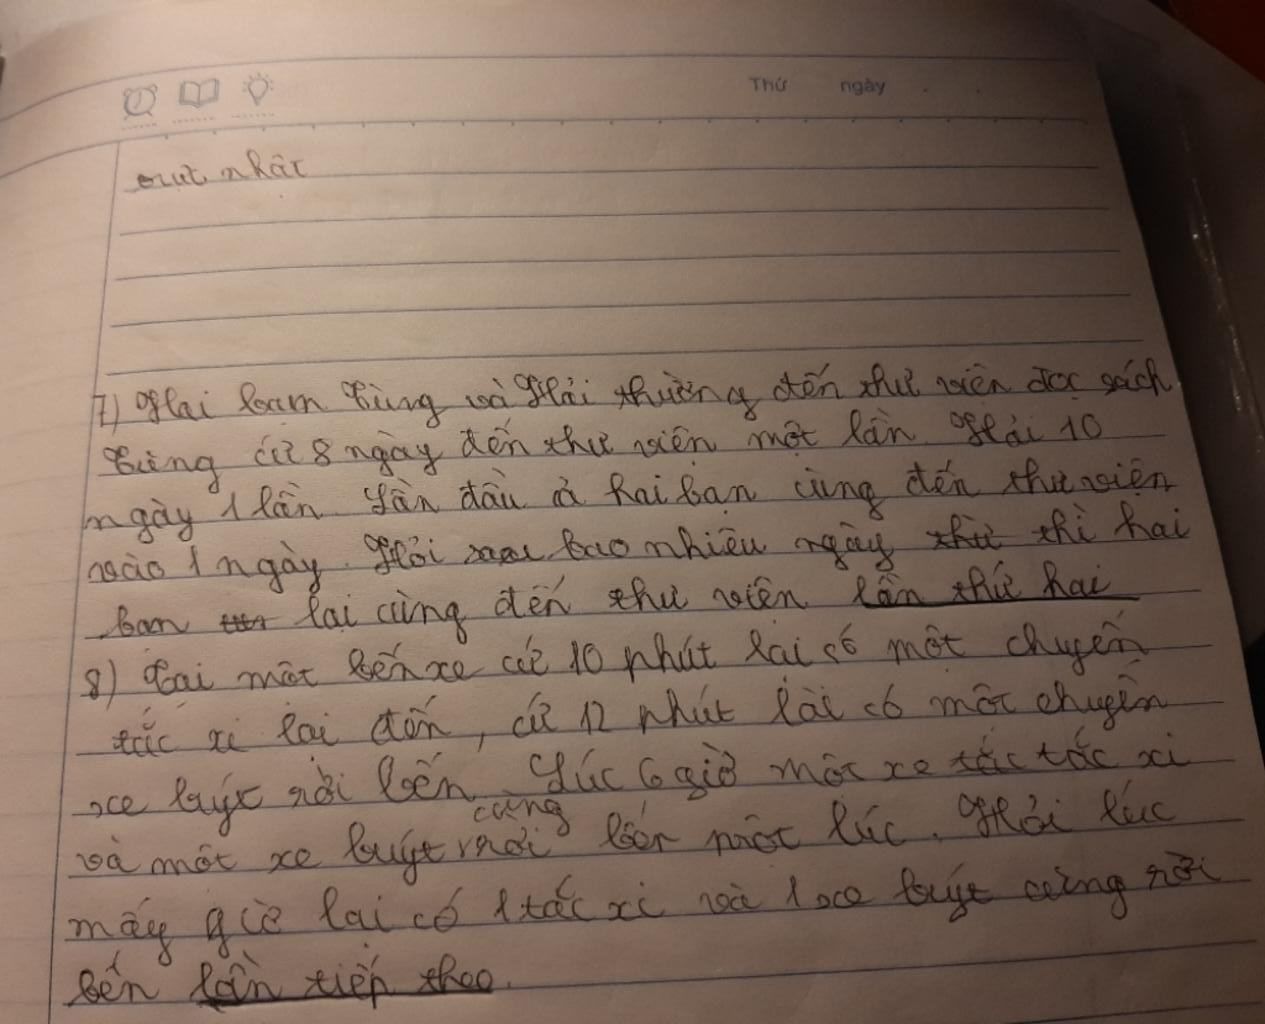 Thứ ngày
nhất
7) Hai bạn Tùng và Hải thường đến thư viện đọc sách
Tùng cứ 8 ngày đến thư viện một lần. Hải 10
ngày 1 lần. Lần đầu cả hai bạn cùng đến thư viện
vào 1 ngày. Hỏi bao nhiêu ngày thì hai
bạn lại cùng đến thư viện lần thứ hai
8) Tại một bến xe cứ 10 phút lại có một chuyến
tắc xi lại đến, cứ 12 phút lại có một chuyến
xe buýt rời bến. Lúc 6 giờ một xe tắc xi
và một xe buýt cùng rời bến một lúc. Hỏi lúc
mấy giờ lại có 1 tắc xi và 1 xe buýt cùng rời
bến lần tiếp theo.